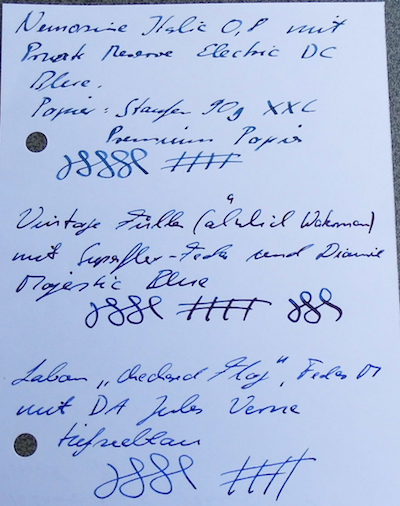 Nemosine Italic 0,8 mit
Private Reserve Electric DC
Blue.
Papier: Staufen 90g XXL
Premium Papier
Vintage Füller (ähnlich Waterman)
mit Superflex-Feder und Diamine
Majestic Blue
Laban „ Flag", Feder M
mit DA Jules Verne
tiefseeblau